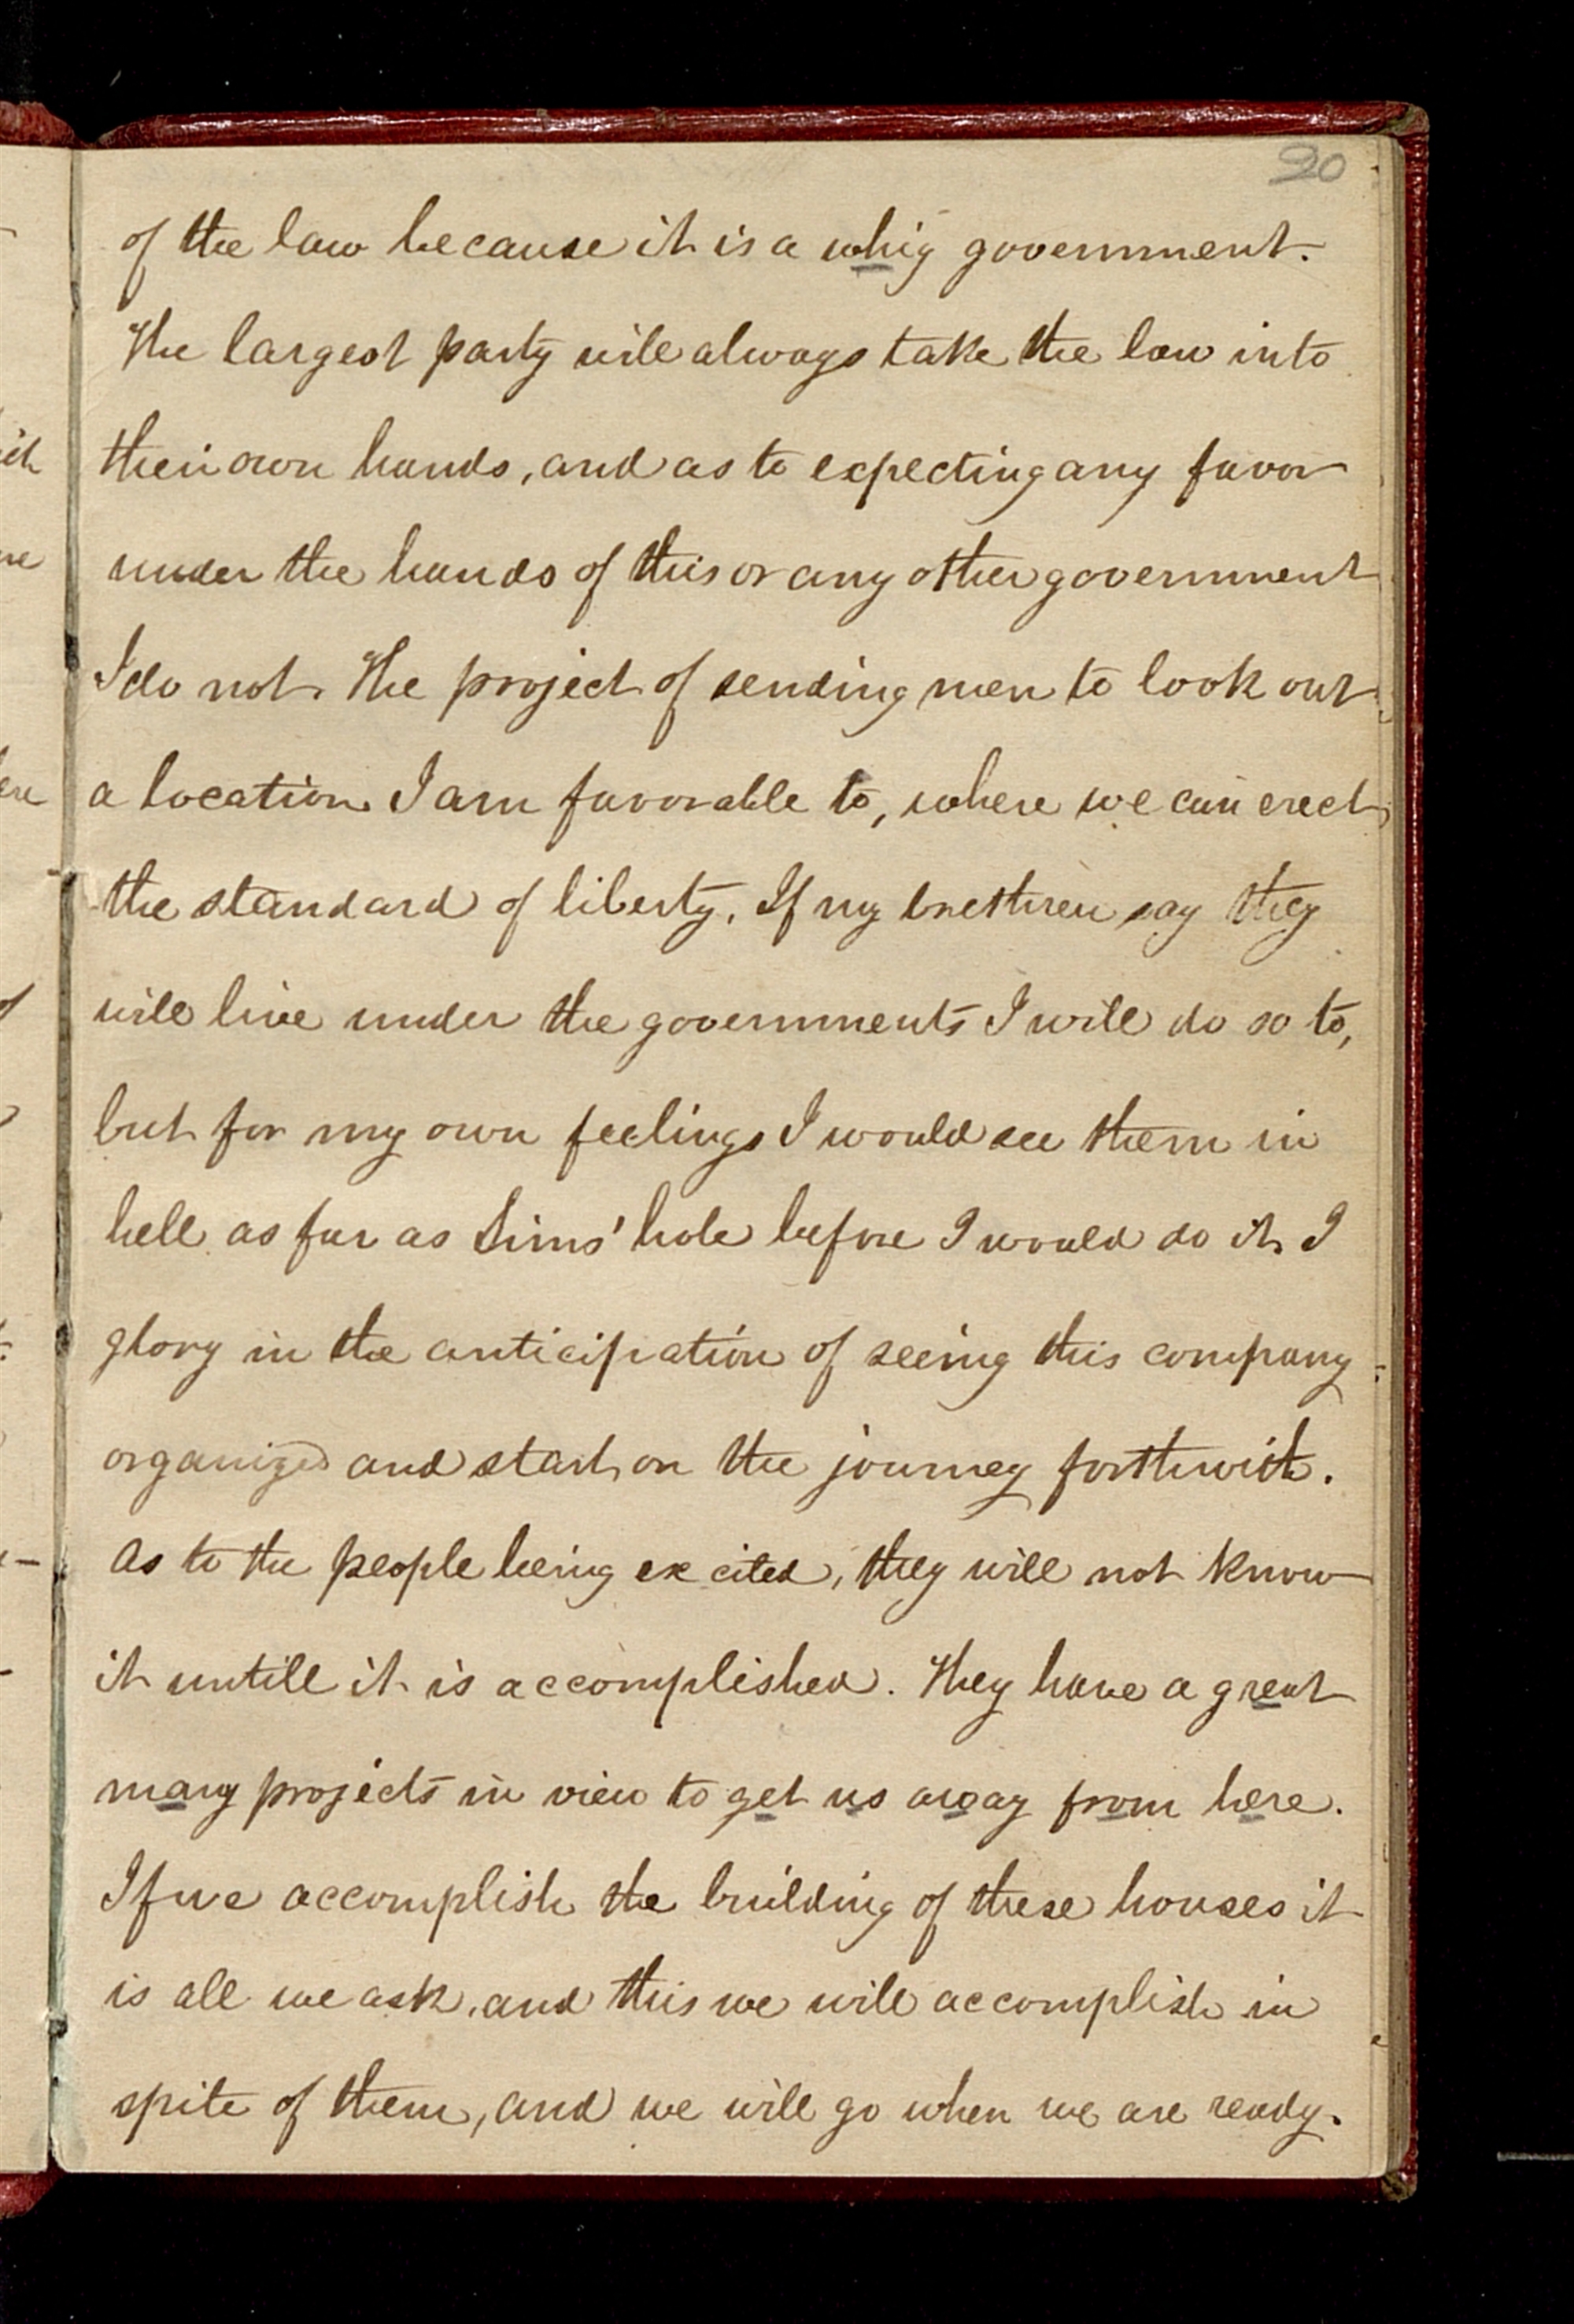 20
of the law because it is a whig government.
The largest party will always take the law into
their own hands, and as to expecting any favor
under the hands of this or any other government
I do not. The project of sending men to look out
a location I am favorable to, where we can erect
the standard of liberty. If my brethren say they
will live under the governments I will do so to,
but for my own feelings I would see them in
hell as far as Sims' hole before I would do it. I
glory in the anticipation of seeing this company
organized and start on the journey forthwith.
As to the people being excited, they will not know
it untill it is accomplished. They have a great
many projects in view to get us away from here.
If we accomplish the building of these houses it
is all we ask, and this we will accomplish in
spite of them, and we will go when we are ready.